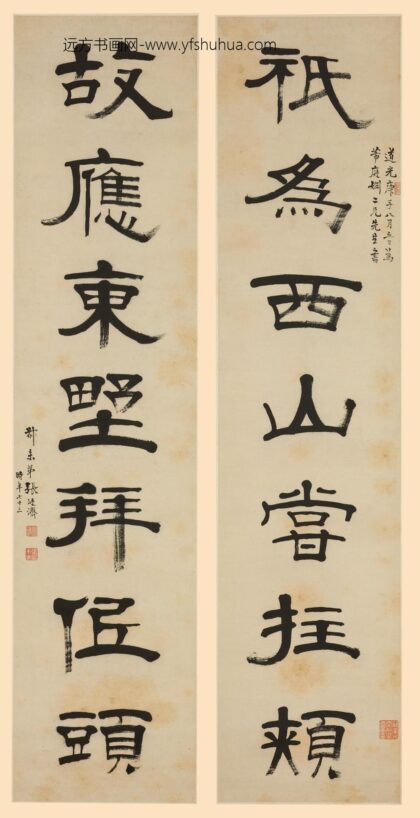 远方书画网-www.yfshuhua.com
祇為西山嘗拄頰
道光庚子八月為
二兄先生書
故應東野拜低頭
叔未弟張廷濟
時年七十三